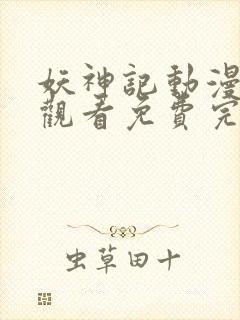 妖神記動漫
觀看免費完
虫草田十